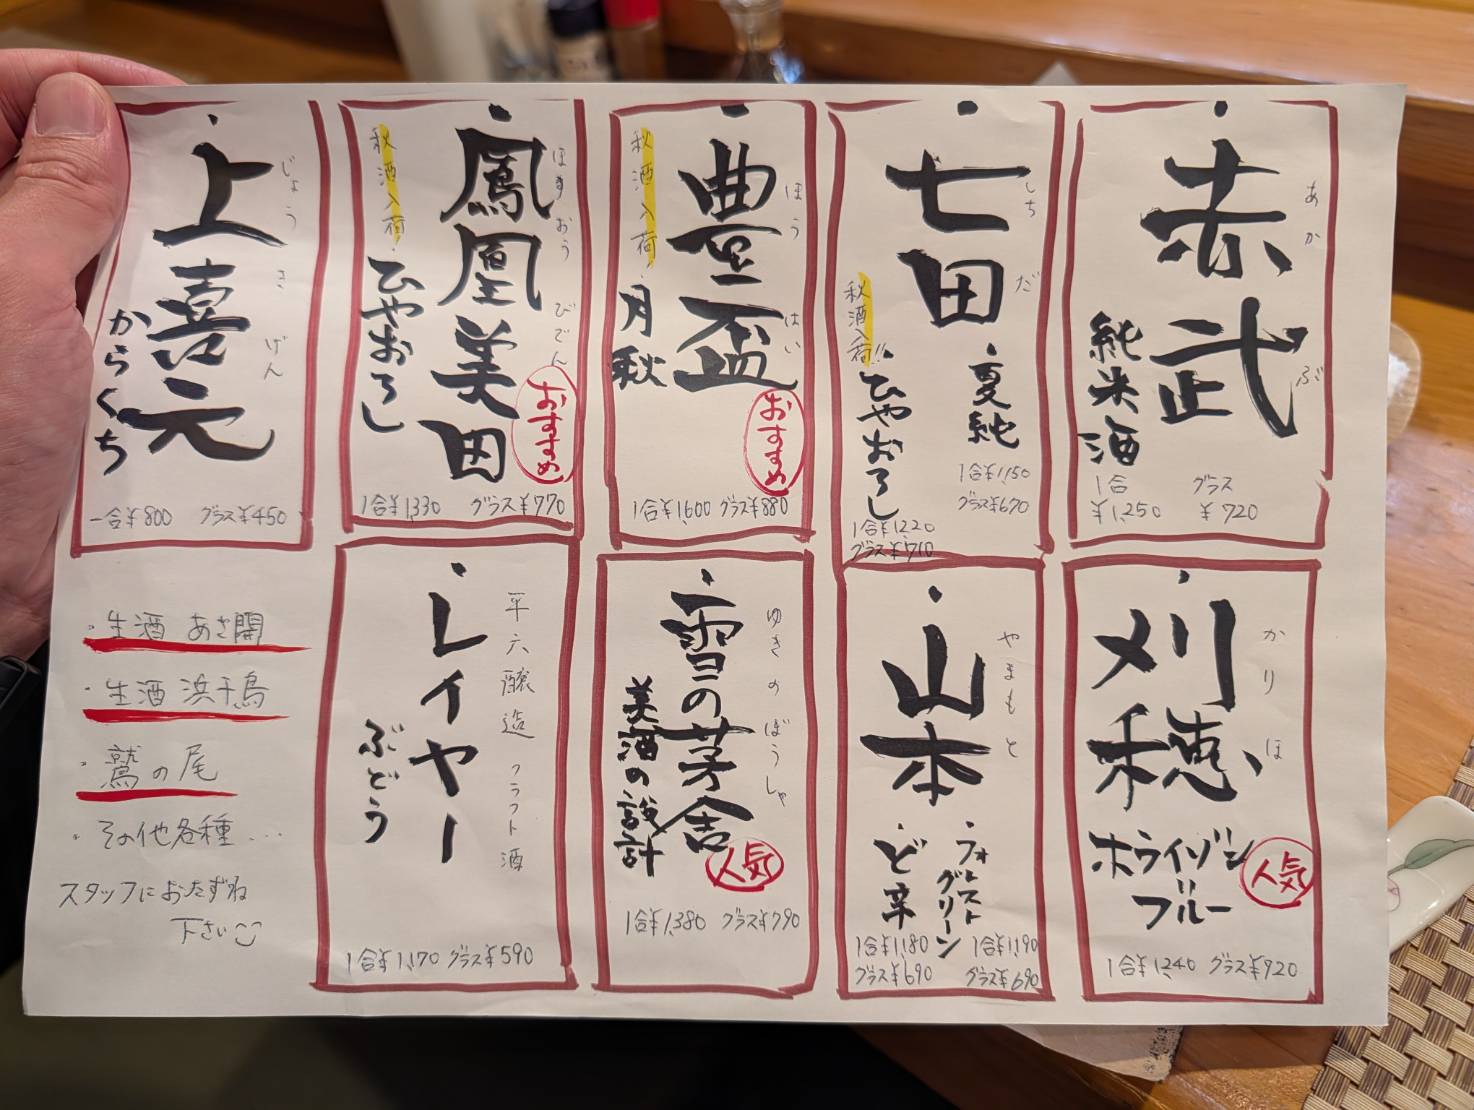 赤武
あかぶ
純米酒
1合 ¥1,250
グラス ¥720
七田
しちだ
・夏純
1合¥1,150
グラス¥670
秋酒入荷!!
・ひやおろし
1合¥1,220
グラス¥710
豊盃
ほうはい
秋酒入荷
・月秋
おすすめ
1合¥1,600 グラス¥880
鳳凰美田
ほうおうびでん
秋酒入荷
・ひやおろし
おすすめ
1合¥1,330 グラス¥770
上喜元
じょうきげん
からくち
一合¥800 グラス¥450
刈穂
かりほ
ホライゾンブルー
人気
1合¥1,240 グラス¥720
山本
やまもと
・フォレストグリーン
1合¥1,190
グラス¥690
・ど辛
1合¥1,180
グラス¥690
雪の茅舎
ゆきのぼうしゃ
美酒の設計
人気
1合¥1,380 グラス¥790
平六醸造 クラフト酒
レイヤー
ぶどう
1合¥1,170 グラス¥590
・生酒 あさ開
・生酒 浜千鳥
・鷲の尾
・その他各種…
スタッフにおたずね
下さい